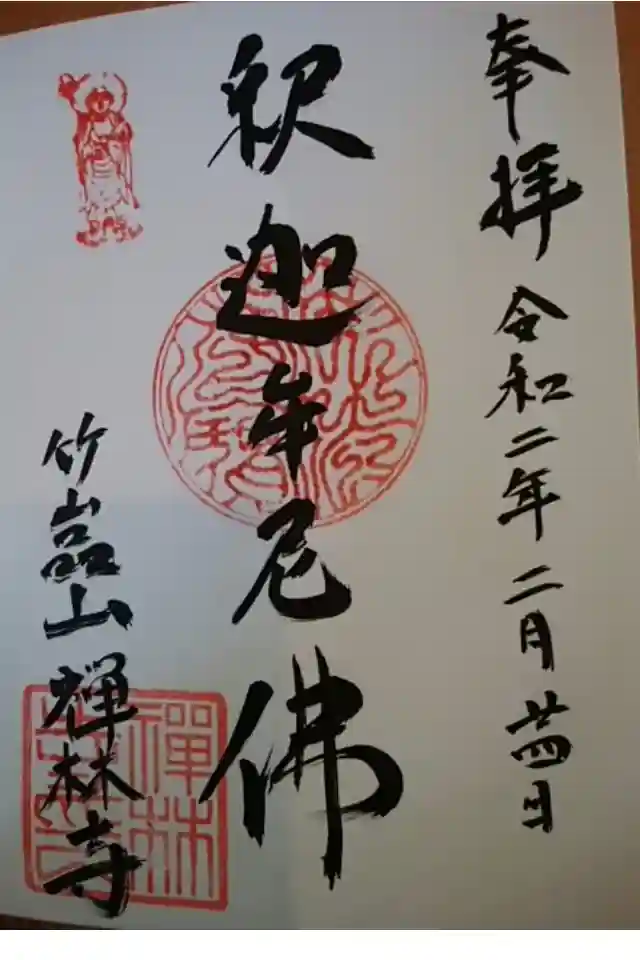 奉拝 令和二年二月廿四日
釈迦牟尼佛
竹嵓山禅林寺
禪林